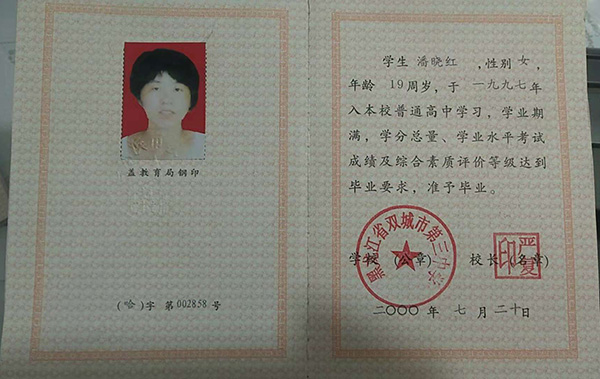 盖教育局钢印
(哈)字 第 002858 号
学生 潘晓红 ,性别 女,
年龄 19 周岁,于 一九九七 年
入本校普通高中学习,学业期
满,学分总量、学业水平考试
成绩及综合素质评价等级达到
毕业要求,准予毕业。
黑龙江省双城市第三中学
学校 (公章) 校长 (名章)
严夏印
二〇〇〇 年 七 月 二十 日